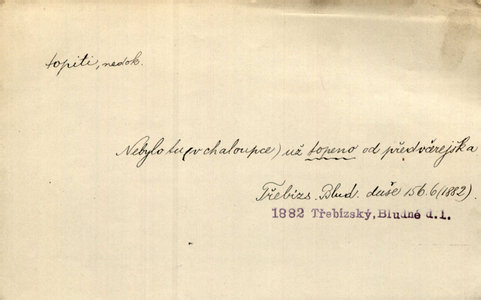 topiti, nedok.
Nebylo tu (v chaloupce) už topeno od předvčerejška
Třebízs. Blud. duše 156.6 (1882).
1882 Třebízský, Bludné d.1.